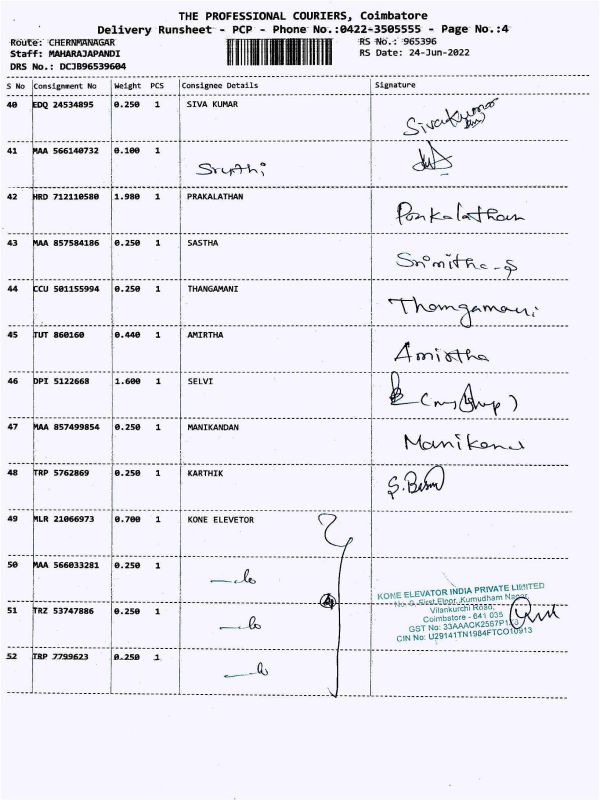 THE PROFESSIONAL COURIERS, Coimbatore
Delivery Runsheet - PCP - Phone No.:0422-3505555 - Page No.:4
Route: CHERNMANAGAR RS No.: 965396
Staff: MAHARAJAPANDI RS Date: 24-Jun-2022
DRS No.: DCJB96539604
S No Consignment No Weight PCS Consignee Details Signature
40 EDQ 24534895 0.250 1 SIVA KUMAR Sivakumar
41 MAA 566140732 0.100 1 Sruthi
42 HRD 712110580 1.980 1 PRAKALATHAN Ponkalathan
43 MAA 857584186 0.250 1 SASTHA Srimitha-S
44 CCU 501155994 0.250 1 THANGAMANI Thangamani
45 TUT 860160 0.440 1 AMIRTHA Amirtha
46 DPI 5122668 1.600 1 SELVI
47 MAA 857499854 0.250 1 MANIKANDAN
48 TRP 5762869 0.250 1 KARTHIK
49 MLR 21066973 0.700 1 KONE ELEVETOR
50 MAA 566033281 0.250 1
51 TRZ 53747886 0.250 1
52 TRP 7799623 0.250 1
KONE ELEVATOR INDIA PRIVATE LIMITED
First Floor, Kumudham Nagar,
Vilankurchi Road,
Coimbatore - 641 035
GST No: 33AAACK2567P1
CIN No: U29141TN1984FTCO10913